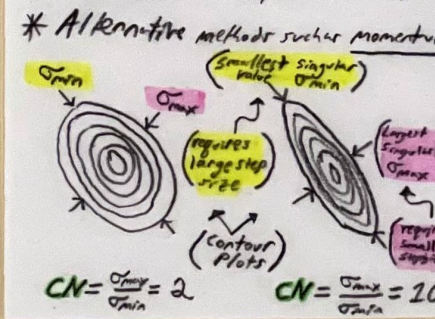 * Alternative methods such as momentu
(smallest singular
value σmin)
σmin
σmax
(requires
large step
size)
(Largest
singular
σmax
(requi
small
(Contour
Plots)
CN = σmax/σmin = 2
CN = σmax/σmin = 10